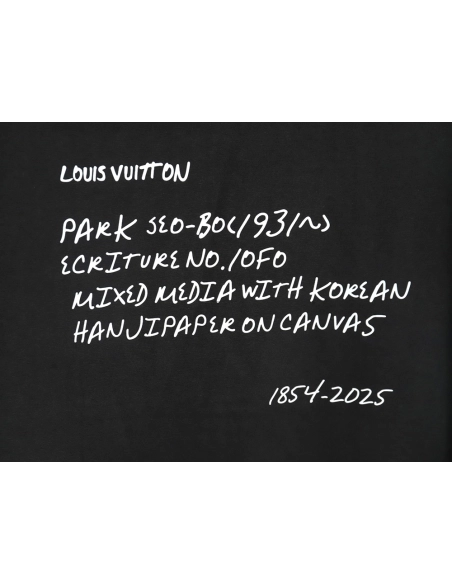 LOUIS VUITTON
PARK SEO-BO(1931~)
ECRITURE NO.10F0
MIXED MEDIA WITH KOREAN
HANJIPAPER ON CANVAS
1854-2025